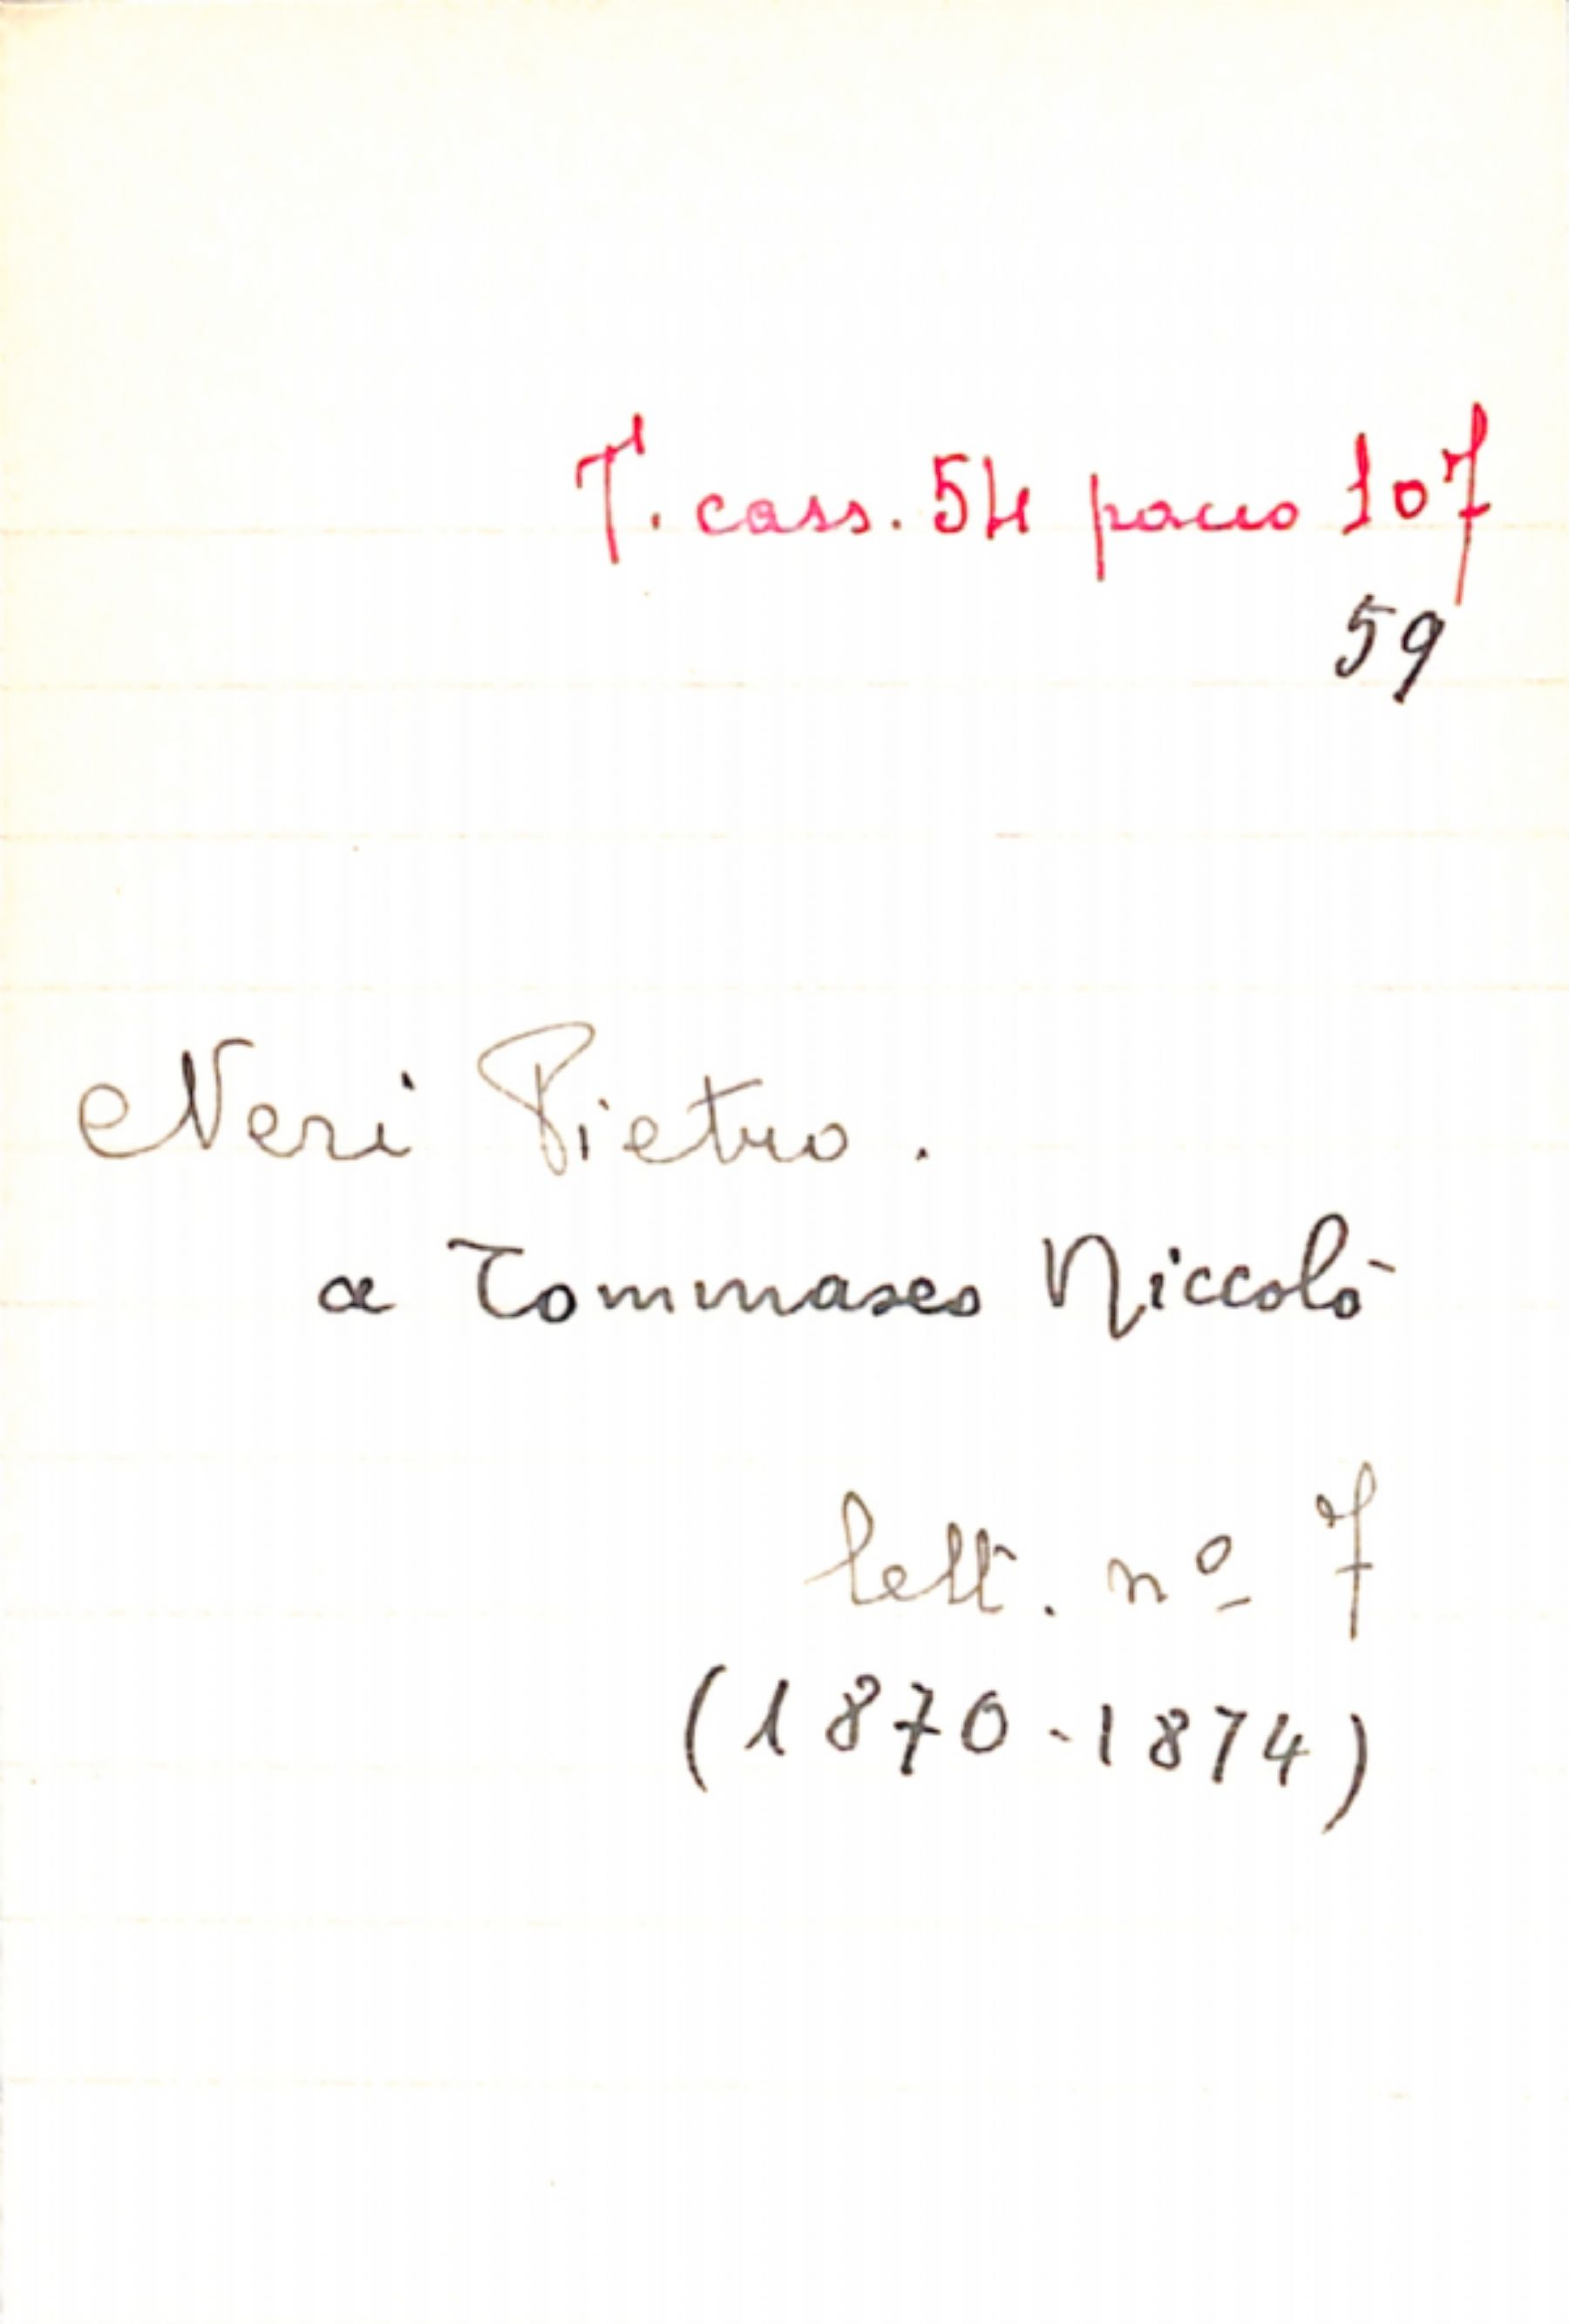 T. cass. 54 pacco 107
59
Neri Pietro.
a Tommaseo Niccolò
lett. nº 7
(1870-1874)